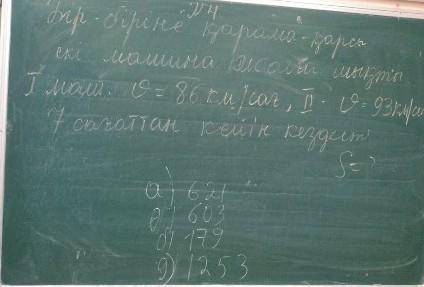 №4
Бір-біріне қарама-қарсы
екі машина жолға шықты
I маш. υ = 86 км/сағ, II - υ = 93 км/сағ
7 сағаттан кейін кездесті
S = ?
а) 621
ә) 603
б) 179
д) 1253